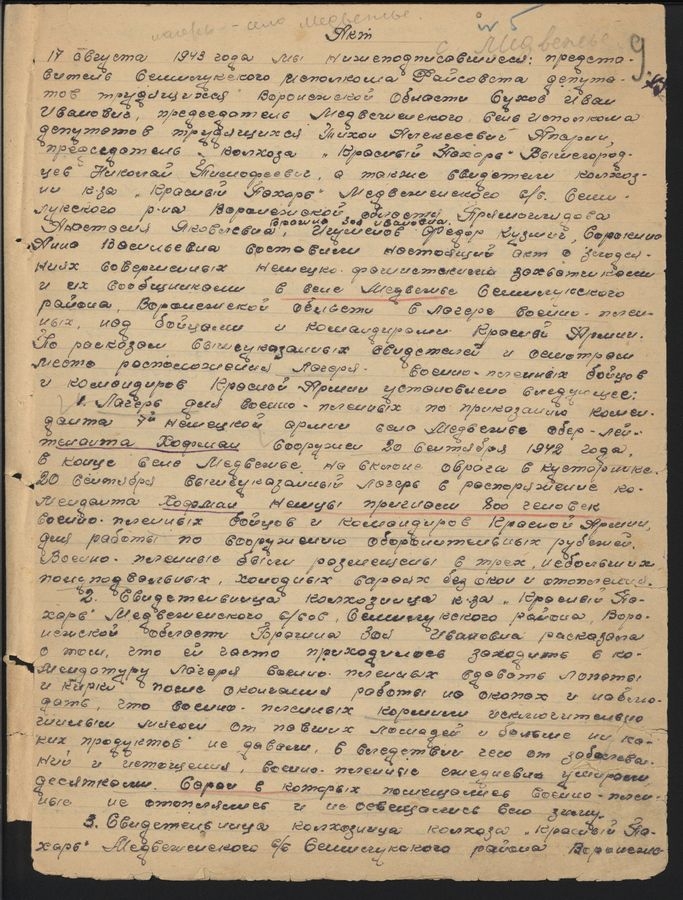 лагерь - село Медвежье.
№ 5
с. Медвежье
9.
Акт
17 августа 1943 года мы нижеподписавшиеся: предста-
витель Семилукского исполкома Райсовета депута-
тов трудящихся Воронежской области Сухов Иван
Иванович, председатель Медвеженского сельисполкома
депутатов трудящихся Тихон Алексеевич
председатель колхоза "Красный Пахарь" Вышегород-
цев Николай Тимофеевич, а также свидетели колхоз-
ни к-за "Красный Пахарь" Медвеженского с/с. Семи-
лукского р-на Воронежской области
Брагина Зоя Ивановна
Анастасия Яковлевна, Федор Кузмич, Сорокина
Анна Васильевна составили настоящий акт о злодея-
ниях совершенных немецко-фашистскими захватчиками
и их сообщниками в селе Медвежье Семилукского
района, Воронежской области в лагере военно-плен-
ных, над бойцами и командирами Красной Армии.
По рассказам вышеуказанных свидетелей и осмотрам
место расположения лагеря военно-пленных бойцов
и командиров Красной Армии установлено следующее:
1. Лагерь для военно-пленных по приказанию комен-
данта 7й немецкой армии села Медвежье обер-лей-
тенанта Хофман сооружен 20 сентября 1942 года,
в конце села Медвежье. На склоне оврага в кустарнике.
20 сентября вышеуказанный лагерь в распоряжение ко-
менданта Хофман немцы пригнали 800 человек
военно-пленных бойцов и командиров Красной Армии,
для работы по сооружению оборонительных рубежей.
Военно-пленные были размещены в трех, небольших,
полуподвальных, холодных сараях без окон и отопления.
2. Свидетельница колхозница к-за "Красный Па-
харь" Медвеженского с/сов, Семилукского района, Воро-
нежской области Брагина Зоя Ивановна рассказала
о том, что ей часто приходилось заходить в ко-
мендатуру лагеря военно-пленных сдавать лопаты
и кирки после окончания работы на окопах и наблю-
дать, что военно-пленных кормили исключительно
гнилым мясом от павших лошадей и больше ни ка-
ких продуктов не давали, в следствии чего от заболева-
ний и истощения, военно-пленные ежедневно умирали
десятками. Сараи в которых помещались военно-плен-
ные не отоплялись и не освещались всю зиму.
3. Свидетельница колхозница колхоза "Красный Па-
харь" Медвеженского с/с Семилукского района Воронеж-